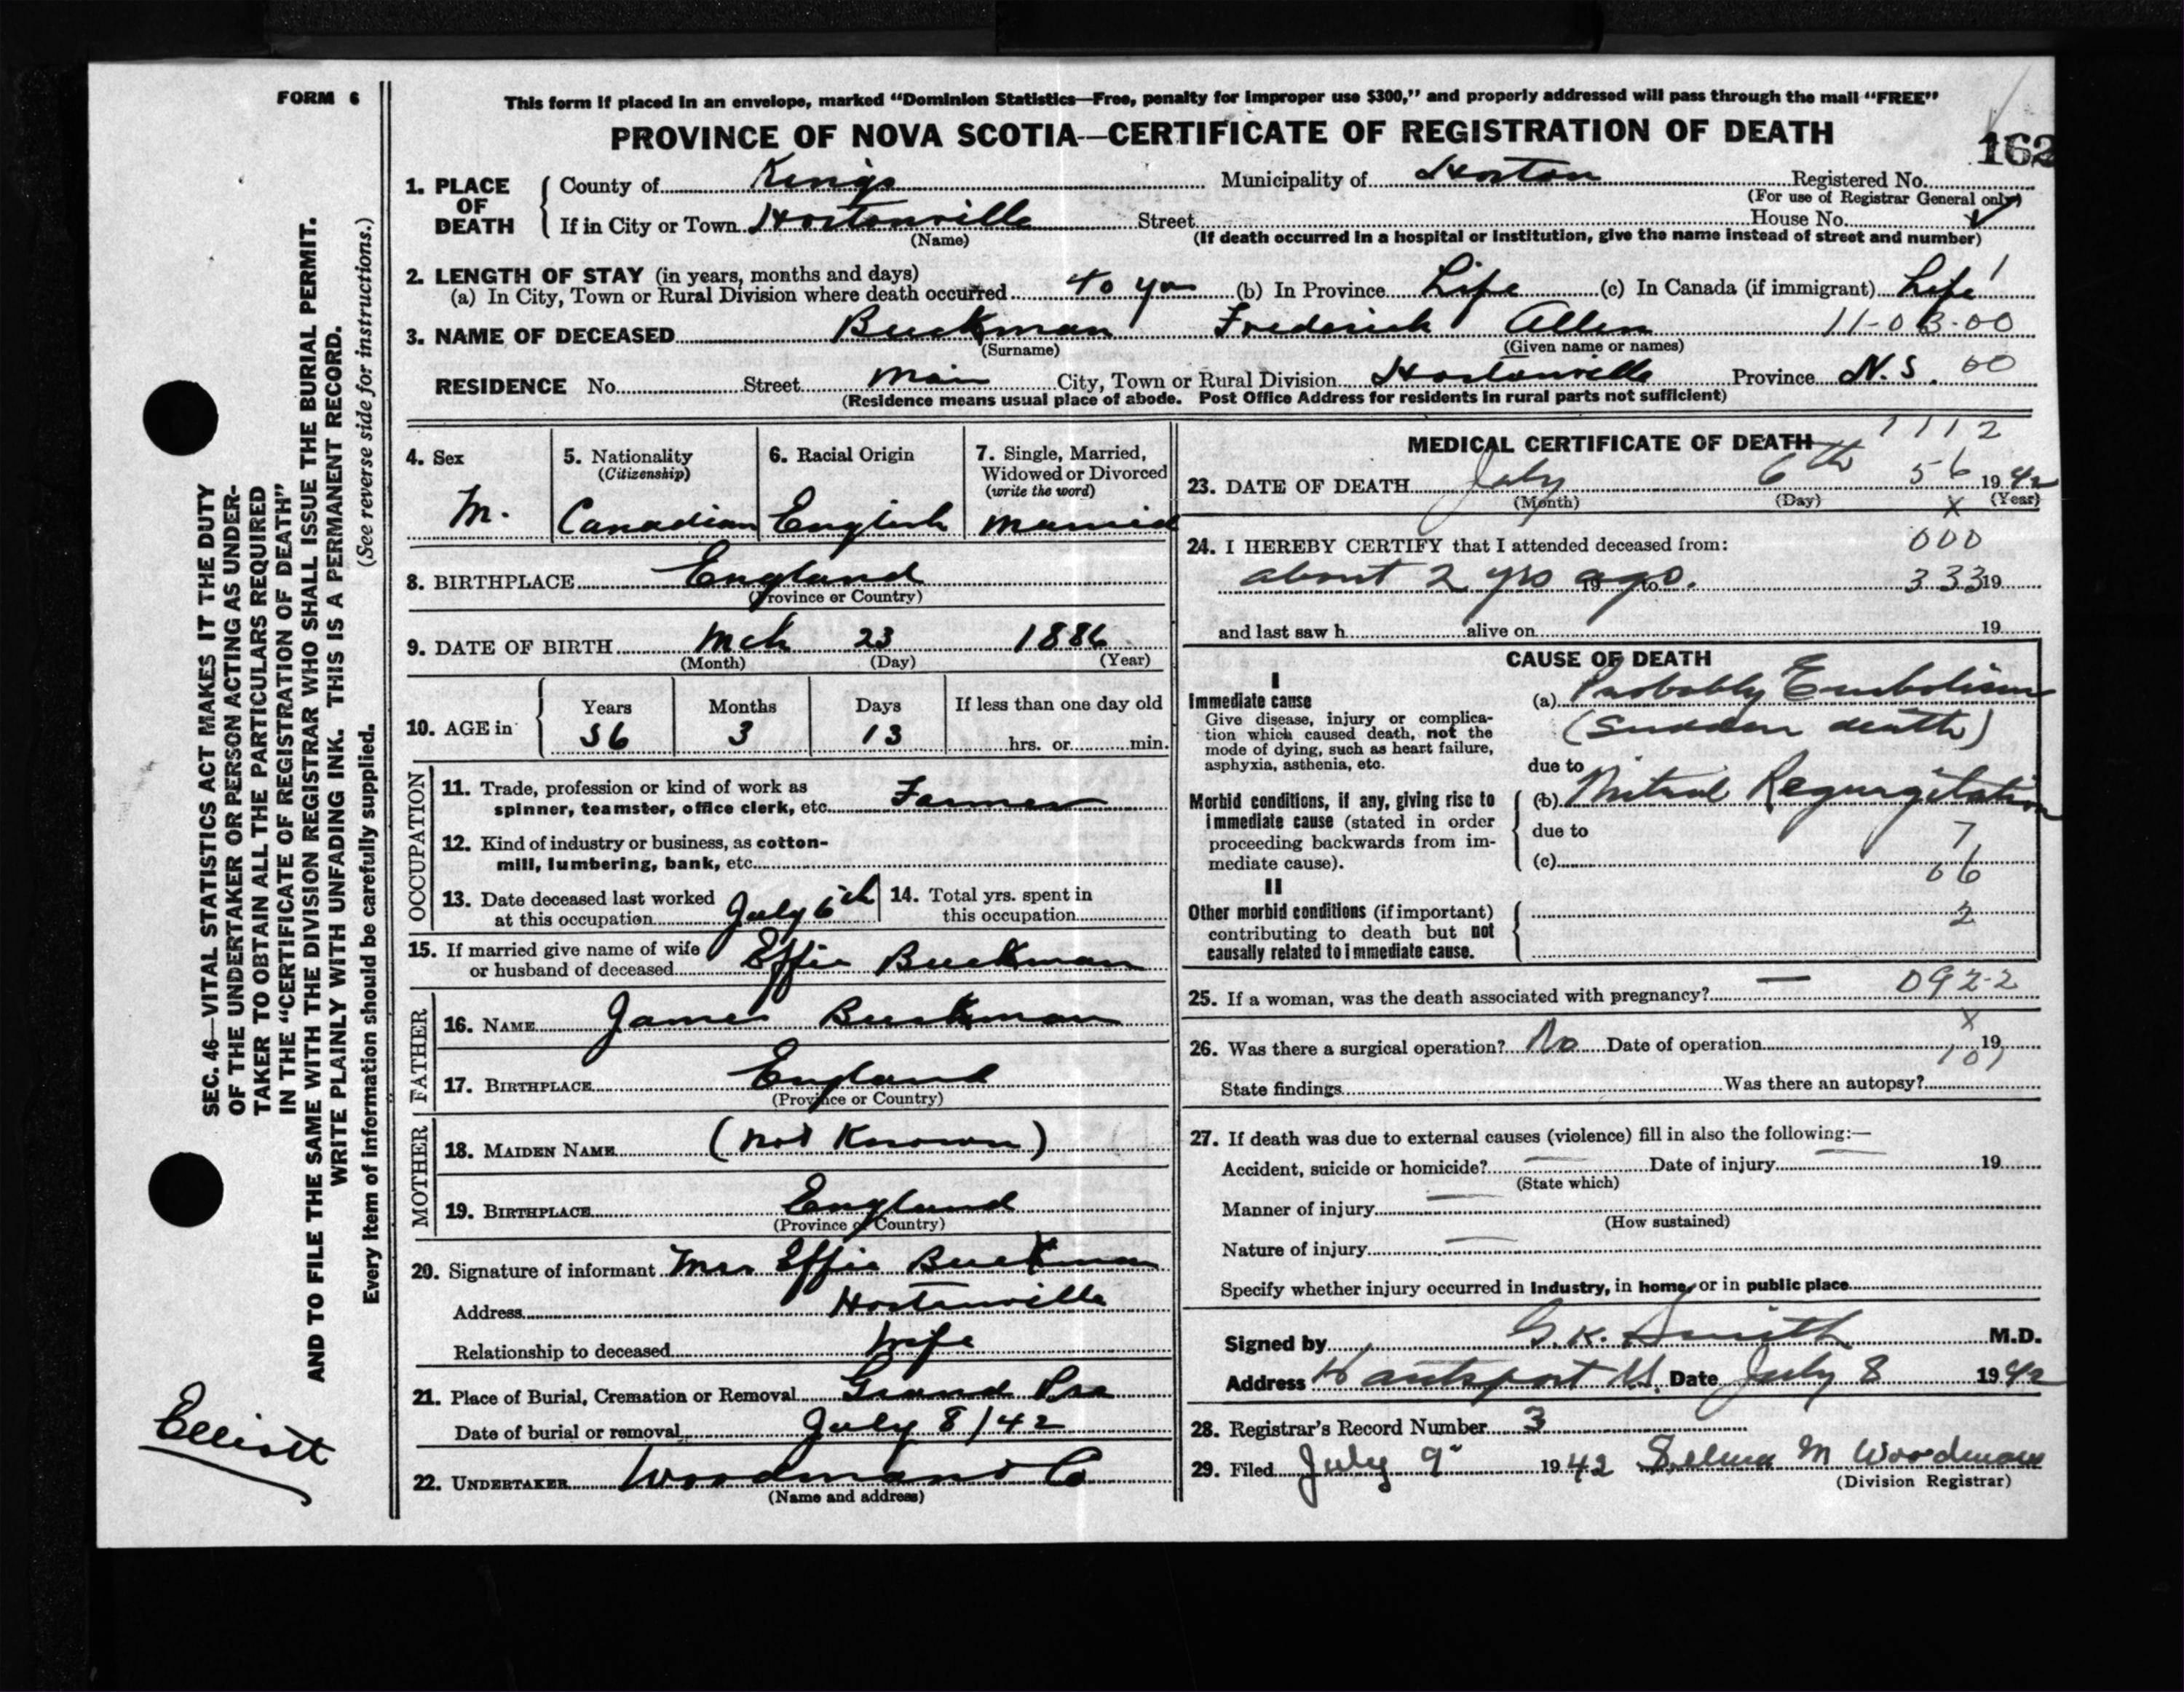 FORM 6
This form if placed in an envelope, marked "Dominion Statistics—Free, penalty for improper use $300," and properly addressed will pass through the mail "FREE"
PROVINCE OF NOVA SCOTIA—CERTIFICATE OF REGISTRATION OF DEATH
162
1. PLACE OF DEATH County of Kings Municipality of Horton Registered No.
(For use of Registrar General only)
If in City or Town Hortonville Street House No.
(Name) (If death occurred in a hospital or institution, give the name instead of street and number)
2. LENGTH OF STAY (in years, months and days)
(a) In City, Town or Rural Division where death occurred 40 yrs (b) In Province Life (c) In Canada (if immigrant) Life
3. NAME OF DECEASED Buckman Frederick Allen 11-03-00
(Surname) (Given name or names)
RESIDENCE No. Street Main City, Town or Rural Division Hortonville Province N.S. 00
(Residence means usual place of abode. Post Office Address for residents in rural parts not sufficient)
4. Sex 5. Nationality 6. Racial Origin 7. Single, Married,
(Citizenship) Widowed or Divorced
(write the word)
M. Canadian English Married
8. BIRTHPLACE England
(Province or Country)
9. DATE OF BIRTH Mch 23 1886
(Month) (Day) (Year)
10. AGE in Years Months Days If less than one day old
56 3 13 hrs. or min.
OCCUPATION
11. Trade, profession or kind of work as
spinner, teamster, office clerk, etc. Farmer
12. Kind of industry or business, as cotton-
mill, lumbering, bank, etc.
13. Date deceased last worked 14. Total yrs. spent in
at this occupation July 6th this occupation
15. If married give name of wife
or husband of deceased Effie Buckman
FATHER
16. NAME James Buckman
17. BIRTHPLACE England
(Province or Country)
MOTHER
18. MAIDEN NAME (not Known)
19. BIRTHPLACE England
(Province or Country)
20. Signature of informant Mrs Effie Buckman
Address Hortonville
Relationship to deceased Wife
21. Place of Burial, Cremation or Removal Grand Pre
Date of burial or removal July 8/42
22. UNDERTAKER Woodmans Co
(Name and address)
1112
MEDICAL CERTIFICATE OF DEATH
23. DATE OF DEATH July 6th 56 1942
(Month) (Day) (Year)
X
24. I HEREBY CERTIFY that I attended deceased from: 000
about 2 yrs ago. 19 to 333 19
and last saw h alive on 19
CAUSE OF DEATH
I
Immediate cause (a) Probably Embolism
Give disease, injury or complica- (Sudden death)
tion which caused death, not the
mode of dying, such as heart failure,
asphyxia, asthenia, etc. due to
Morbid conditions, if any, giving rise to (b) Mitral Regurgitation
immediate cause (stated in order
proceeding backwards from im- due to 7
mediate cause). (c) 06
II
Other morbid conditions (if important) 2
contributing to death but not
causally related to immediate cause.
25. If a woman, was the death associated with pregnancy? — 092-2
X
26. Was there a surgical operation? No Date of operation 19
101
State findings Was there an autopsy?
27. If death was due to external causes (violence) fill in also the following:—
Accident, suicide or homicide? — Date of injury — 19
(State which)
Manner of injury —
(How sustained)
Nature of injury —
Specify whether injury occurred in Industry, in home, or in public place
Signed by G.K. Smith M.D.
Address Hantsport N.S. Date July 8 1942
28. Registrar's Record Number 3
29. Filed July 9" 1942 Selma M Woodman
(Division Registrar)
SEC. 46—VITAL STATISTICS ACT MAKES IT THE DUTY
OF THE UNDERTAKER OR PERSON ACTING AS UNDER-
TAKER TO OBTAIN ALL THE PARTICULARS REQUIRED
IN THE "CERTIFICATE OF REGISTRATION OF DEATH"
AND TO FILE THE SAME WITH THE DIVISION REGISTRAR WHO SHALL ISSUE THE BURIAL PERMIT.
WRITE PLAINLY WITH UNFADING INK. THIS IS A PERMANENT RECORD.
Every item of information should be carefully supplied. (See reverse side for instructions.)
Elliott